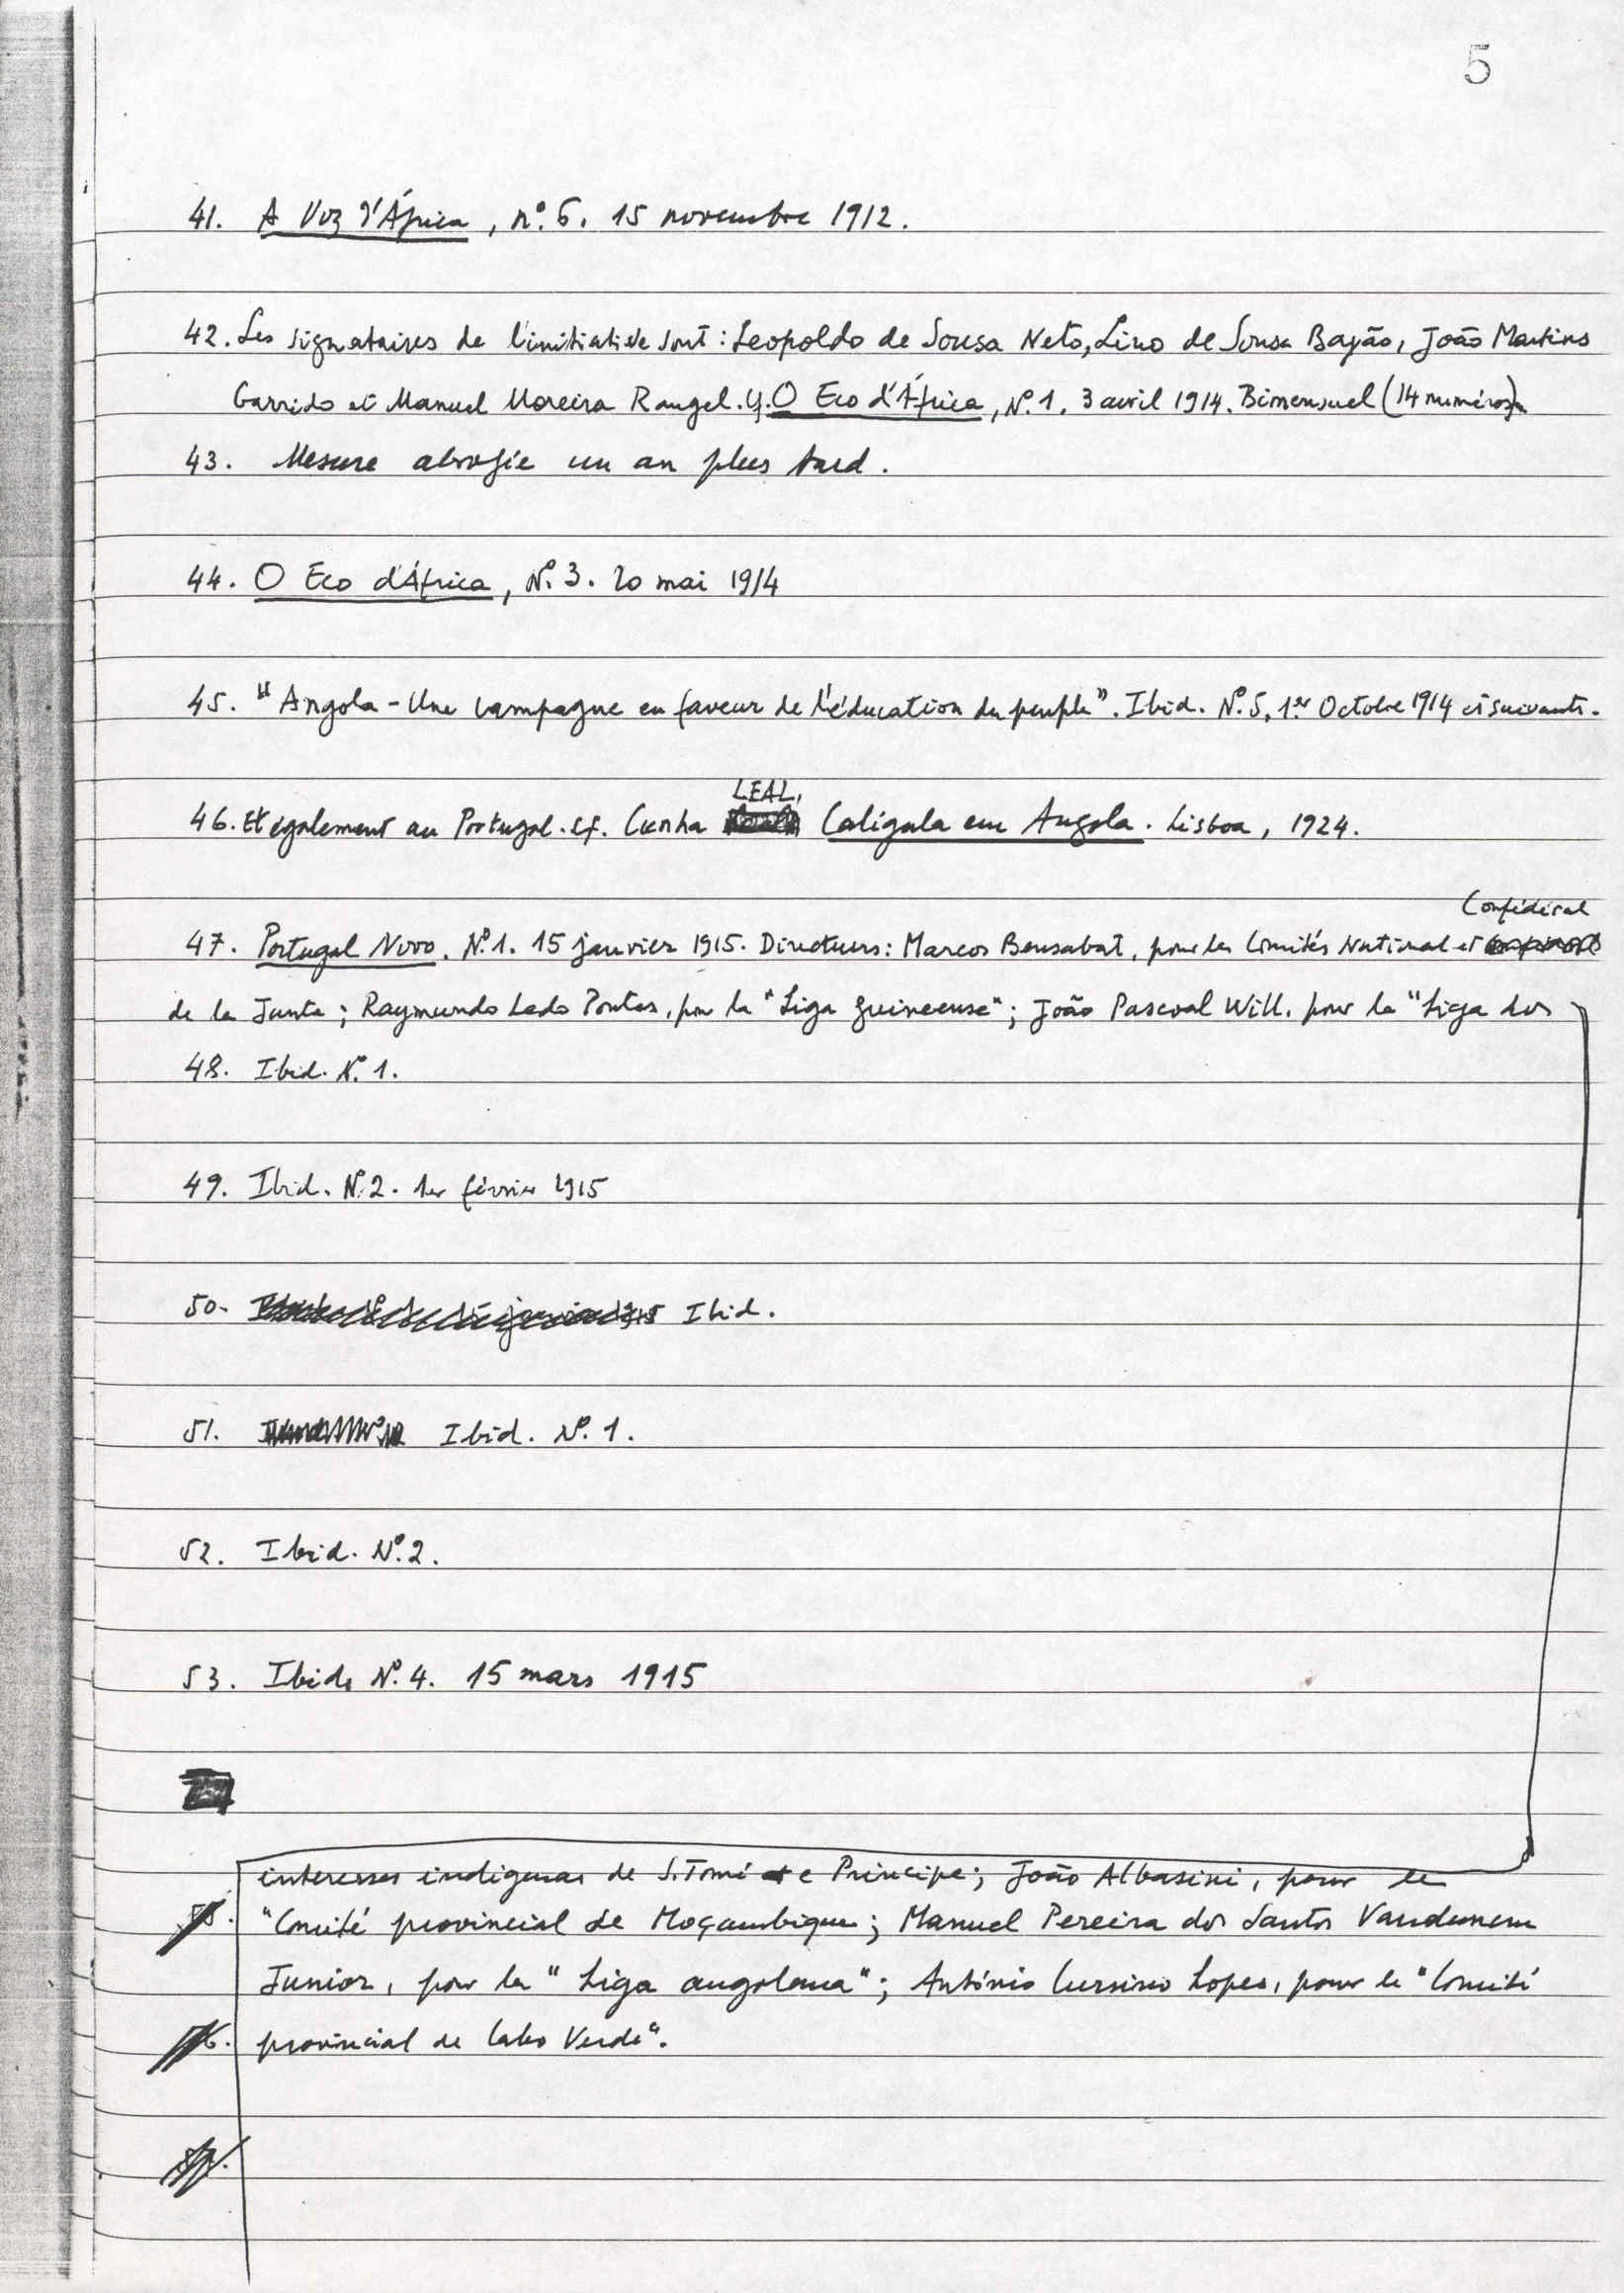 5
41. A Voz d'África, nº. 6. 15 novembre 1912.
42. Les signataires de l'initiative sont : Leopoldo de Sousa Neto, Lino de Sousa Bayão, João Martins
Garrido et Manuel Moreira Rangel. Cf. O Eco d'África, Nº. 1, 3 avril 1914. Bimensuel (14 numéros).
43. Mesure abrogée un an plus tard.
44. O Eco d'África, Nº. 3. 20 mai 1914
45. "Angola - Une campagne en faveur de l'éducation du peuple". Ibid. Nº. 5, 1er Octobre 1914 et suivants.
LEAL,
46. Et également au Portugal. Cf. Cunha Caligula em Angola. Lisboa, 1924.
Confédéral
47. Portugal Novo. Nº. 1. 15 janvier 1915. Directeurs : Marcos Bensabat, pour les Comités National et
de la Junta ; Raymundo Ledo Pontes, pour la "Liga guineense" ; João Pascoal Will, pour la "Liga dos
48. Ibid. Nº. 1.
49. Ibid. Nº. 2. 1er février 1915
50. Ibid.
51. Ibid. Nº. 1.
52. Ibid. Nº. 2.
53. Ibid. Nº. 4. 15 mars 1915
interesses indigenas de S. Tomé e Principe ; João Albasini, pour le
55. "Comité provincial de Moçambique ; Manuel Pereira dos Santos Vandunem
Junior, pour la "Liga angolana" ; António Cursino Lopes, pour le "Comité
56. provincial de Cabo Verde".